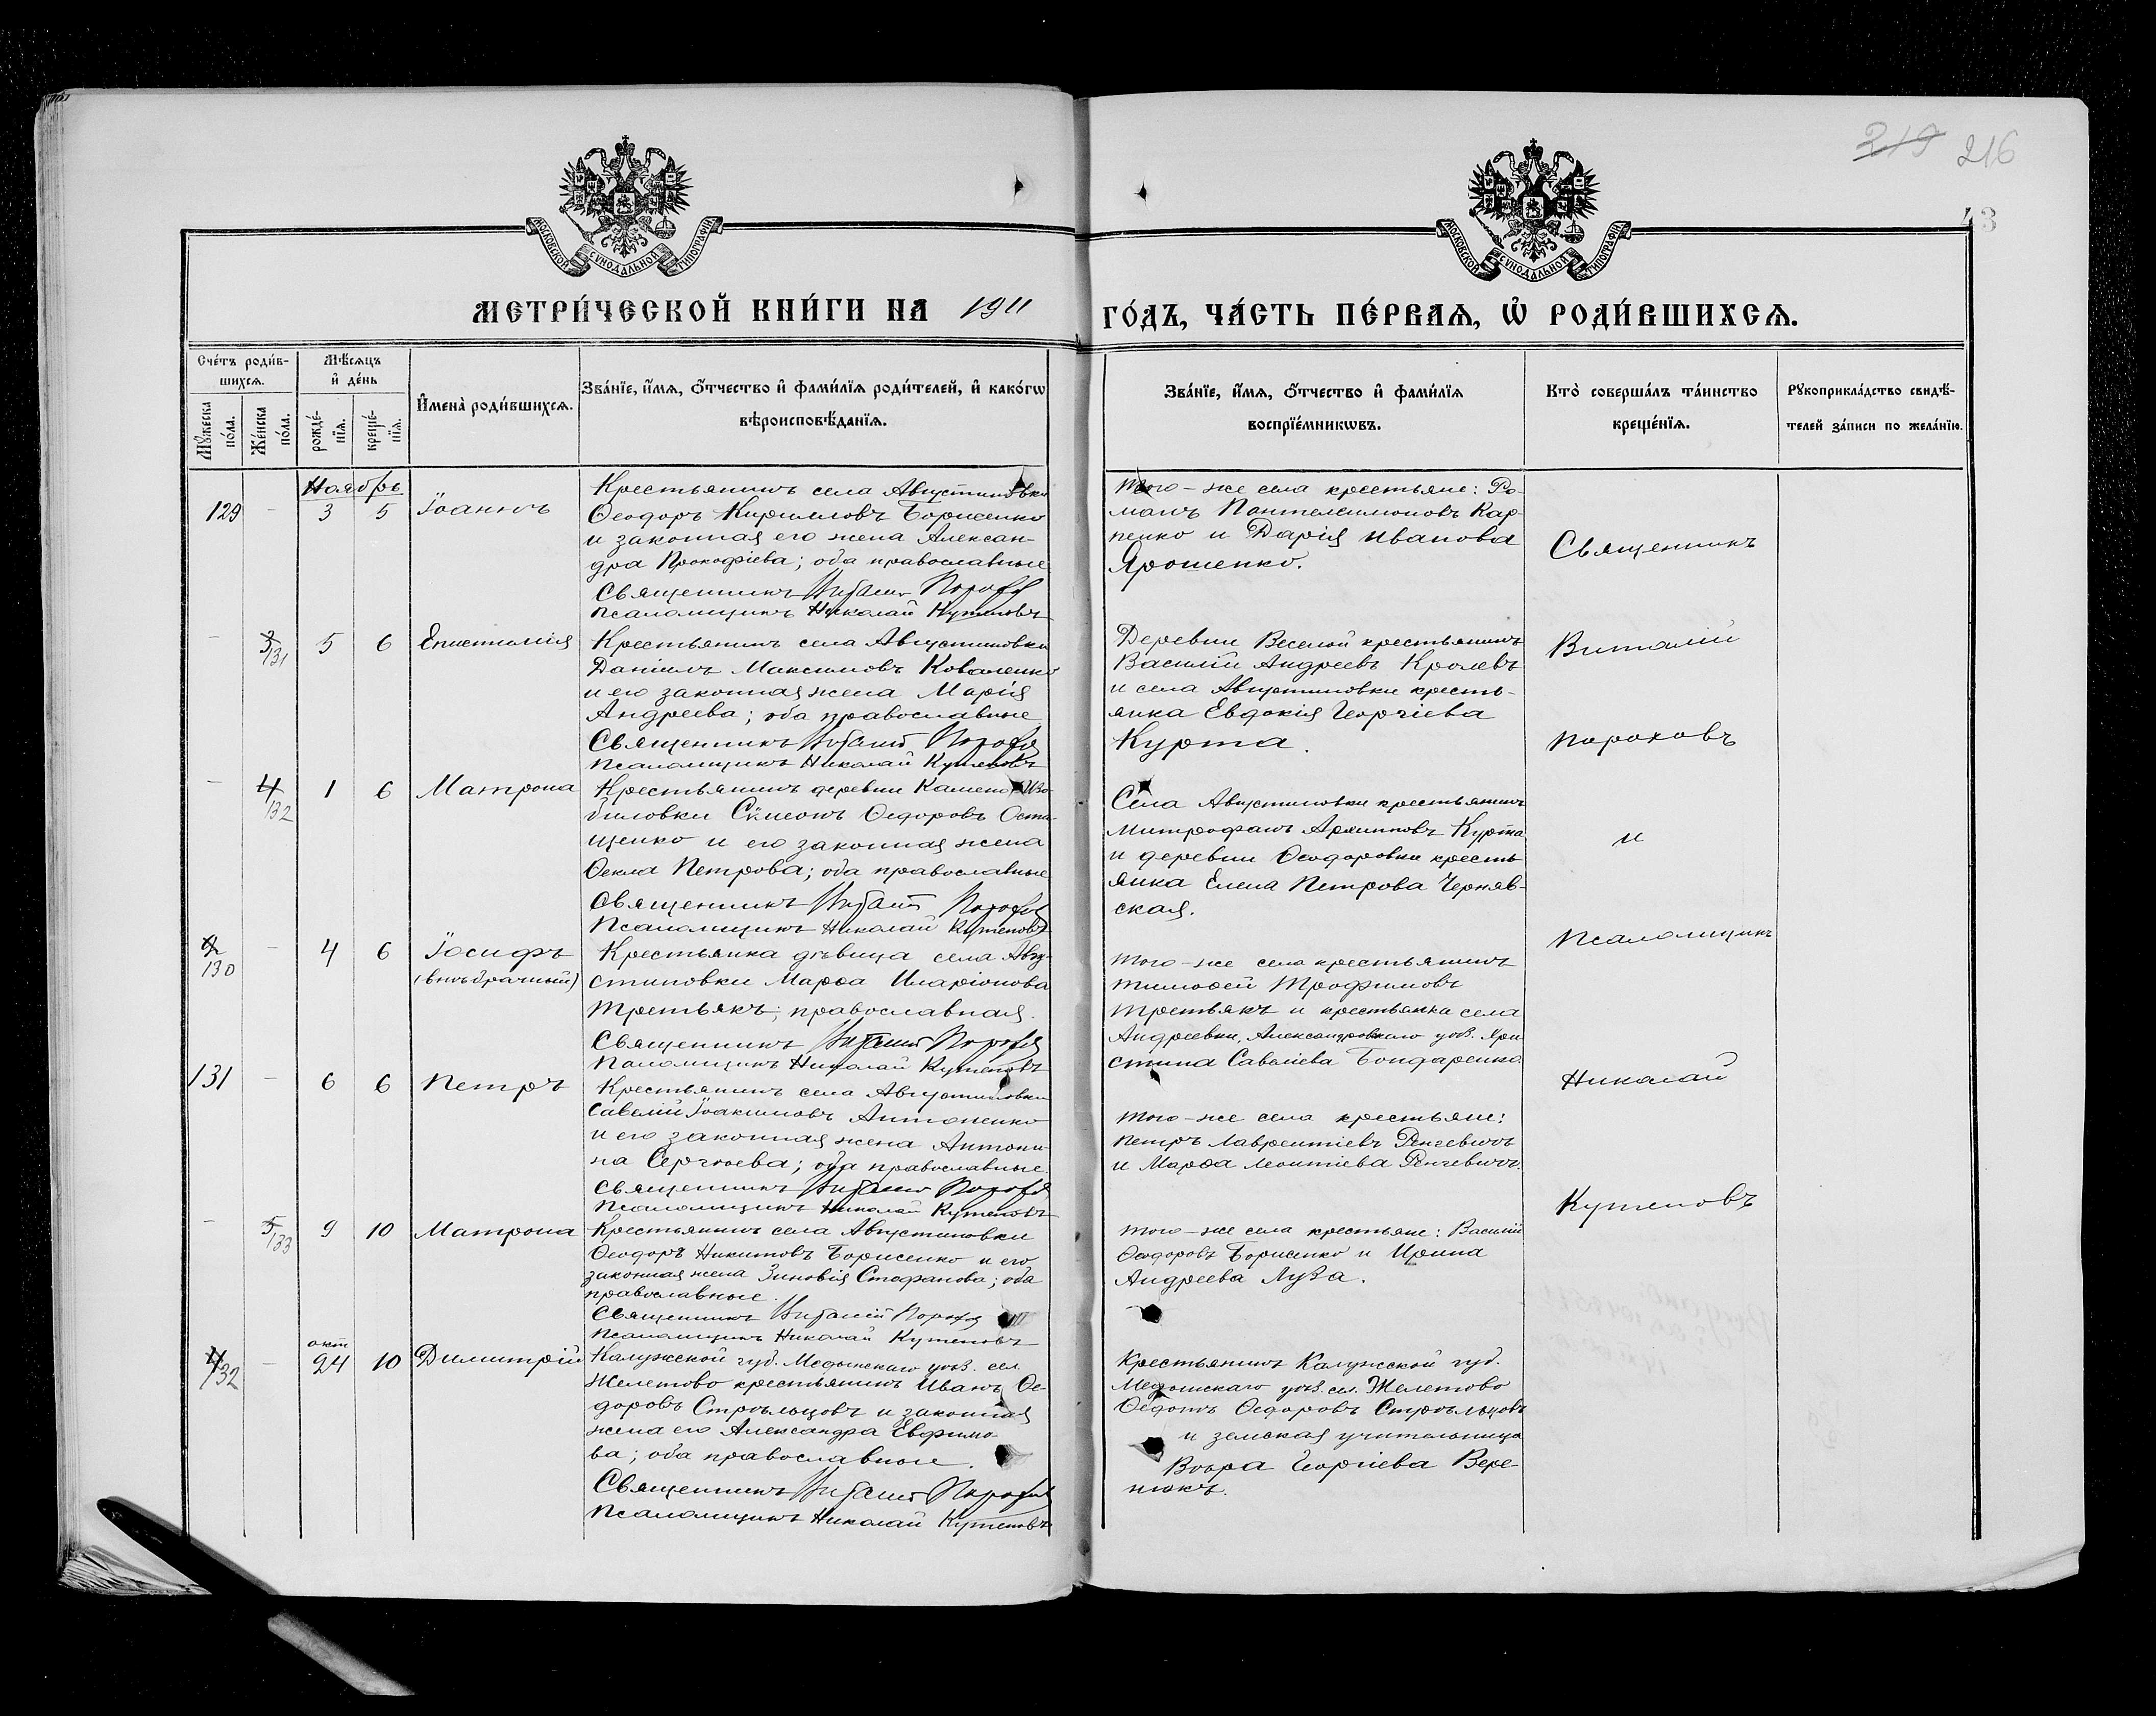 219 216
43
МОСКОВСКОЙ СУНОДАЛЬНОЙ ТИПОГРАФІИ
МОСКОВСКОЙ СУНОДАЛЬНОЙ ТИПОГРАФІИ
МЕТРИ́ЧЕСКОЙ КНИ́ГИ НА 1911 ГО́ДЪ, ЧА́СТЬ ПЕ́РВАѦ, Ѡ҆ РОДИ́ВШИХСѦ.
Сче́тъ роди́в-
шихсѧ.
Мꙋ́жеска по́ла.
Же́нска по́ла.
Мѣ́сѧцъ и҆ де́нь
рожде́-нїѧ.
креще́-нїѧ.
И҆мена̀ роди́вшихсѧ.
Зва́нїе, и҆́мѧ, ѻ҆́тчество и҆ фами́лїѧ роди́телей, и҆ како́гѡ
вѣроисповѣ́данїѧ.
Зва́нїе, и҆́мѧ, ѻ҆́тчество и҆ фами́лїѧ
воспрїе́мникѡвъ.
Кто̀ соверша́лъ та́инство
креще́нїѧ.
Рꙋкоприкла́дство свидѣ́-
телей за́писи по жела́нїю.
Ноябрь
129 - 3 5 Іоаннъ
Крестьянинъ села Августиновки
Ѳеодоръ Кирилловъ Борисенко
и законная его жена Алексан-
дра Прокофіева; оба православные
Священникъ Виталій Пороховъ
Псаломщикъ Николай Кутеповъ
Того-же села крестьяне: Ро-
манъ Пантелеимоновъ Кар-
пенко и Дарія Иванова
Ярошенко.
- 3 131 5 6 Епистимія
Крестьянинъ села Августиновки
Даніилъ Максимовъ Коваленко
и его законная жена Марія
Андреева; оба православные
Священникъ Виталій Пороховъ
Псаломщикъ Николай Кутеповъ
Деревни Веселой крестьянинъ
Василій Андреевъ Кролевъ
и села Августиновки кресть-
янка Евдокія Георгіева
Курта.
- 4 132 1 6 Матрона
Крестьянинъ деревни Камено Изо-
биловки Симеонъ Ѳедоровъ Оста-
щенко и его законная жена
Ѳекла Петрова; оба православные
Священникъ Виталій Пороховъ
Псаломщикъ Николай Кутеповъ
Села Августиновки крестьянинъ
Митрофанъ Архиповъ Курта
и деревни Ѳеодоровки кресть
янка Елена Петрова Черняв-
ская.
2 130 - 4 6 Іосифъ
(внѣбрачный)
Крестьянка дѣвица села Авгу-
стиновки Марѳа Иларіонова
Третьякъ; православная.
Священникъ Виталій Пороховъ
Паломщикъ Николай Кутеповъ
Того-же села крестьянинъ
Тимоѳей Трофимовъ
Третьякъ и крестьянка села
Андреевки, Александровскаго уѣз. Хри
стина Савеліева Бондаренко
131 - 6 6 Петръ
Крестьянинъ села Августиновки
Савелій Іоакимовъ Антоненко
и его законная жена Антони-
на Сергѣева; оба православные.
Священникъ Виталій Пороховъ
Псаломщикъ Николай Кутеповъ
Того-же села крестьяне:
Петръ Лаврентіевъ
и Марѳа Леонтіева
- 5 133 9 10 Матрона
Крестьянинъ села Августиновки
Ѳеодоръ Никитовъ Борисенко и его
законная жена Зиновія Стефанова; оба
православные.
Священникъ Виталій Пороховъ
Псаломщикъ Николай Кутеповъ
Того-же села крестьяне: Василій
Ѳеодоровъ Борисенко и Ирина
Андреева Луза.
окт
4 132 - 24 10 Димитрій
Калужской губ. Медынскаго уѣз. сел.
Желетово крестьянинъ Иванъ Ѳе-
доровъ Стрѣльцовъ и законная
жена его Александра Евфимо-
ва; оба православные.
Священникъ Виталій Пороховъ
Псаломщикъ Николай Кутеповъ
Крестьянинъ Калужской губ.
Медынскаго уѣз. сел. Желетово
Ѳедотъ Ѳедоровъ Стрѣльцовъ
и земская учительница
Вѣра Георгіева Вере-
нюкъ.
Священникъ
Виталій
Пороховъ
и
Псаломщикъ
Николай
Кутеповъ